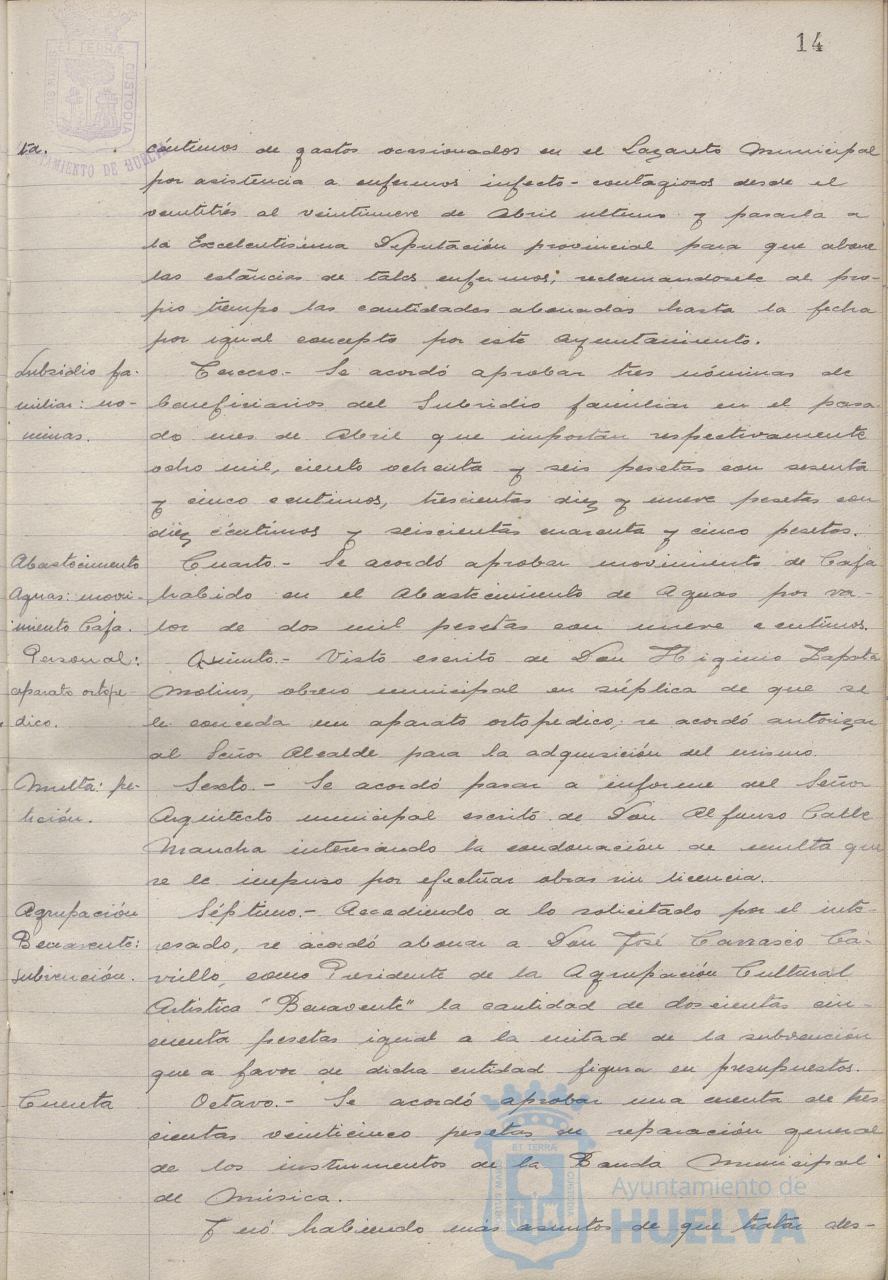 14
ET TERRÆ
CUSTODIA
AYUNTAMIENTO DE HUELVA
ta.
céntimos de gastos ocasionados en el Lazareto Municipal
por asistencia a enfermos infecto-contagiosos desde el
veintitrés al veintinueve de Abril ultimo y pasarla a
la Excelentísima Diputación provincial para que abone
las estáncias de tales enfermos; reclamandosele al pro-
pio tiempo las cantidades abonadas hasta la fecha
por igual concepto por este Ayuntamiento.
Subsidio fa-
miliar: no-
minas.
Tercero.- Se acordó aprobar tres nóminas de
beneficiarios del Subsidio familiar en el pasa-
do mes de Abril que importan respectivamente
ocho mil, ciento ochenta y seis pesetas con sesenta
y cinco centimos, trescientas diez y nueve pesetas con
diez céntimos y seiscientas cuarenta y cinco pesetas.
Abastecimiento
Aguas: movi-
miento Caja.
Cuarto.- Se acordó aprobar movimiento de Caja
habido en el Abastecimiento de Aguas por va-
lor de dos mil pesetas con nueve centimos.
Personal:
aparato ortope-
dico.
Quinto.- Visto escrito de Don Higinio Zapata
Molins, obrero municipal en súplica de que se
le conceda un aparato ortopedico; se acordó autorizar
al Señor Alcalde para la adquisición del mismo.
Multa: pe-
tición.
Sexto.- Se acordó pasar a informe del Señor
Arquitecto municipal escrito de Don Alfonso Calle
Mancha interesando la condonación de multa que
se le impuso por efectuar obras sin licencia.
Agrupación
Benavente:
subvención.
Séptimo.- Accediendo a lo solicitado por el inte-
resado, se acordó abonar a Don José Carrasco Ca-
rillo, como Presidente de la Agrupación Cultural
Artistica "Benavente" la cantidad de doscientas cin-
cuenta pesetas igual a la mitad de la subvención
que a favor de dicha entidad figura en presupuestos.
Cuenta
Octavo.- Se acordó aprobar una cuenta de tres-
cientas veinticinco pesetas de reparación general
de los instrumentos de la Banda Municipal
de Música.
Y nó habiendo más asuntos de que tratar des-
ET TERRÆ
CUSTODIA
Ayuntamiento de
HUELVA